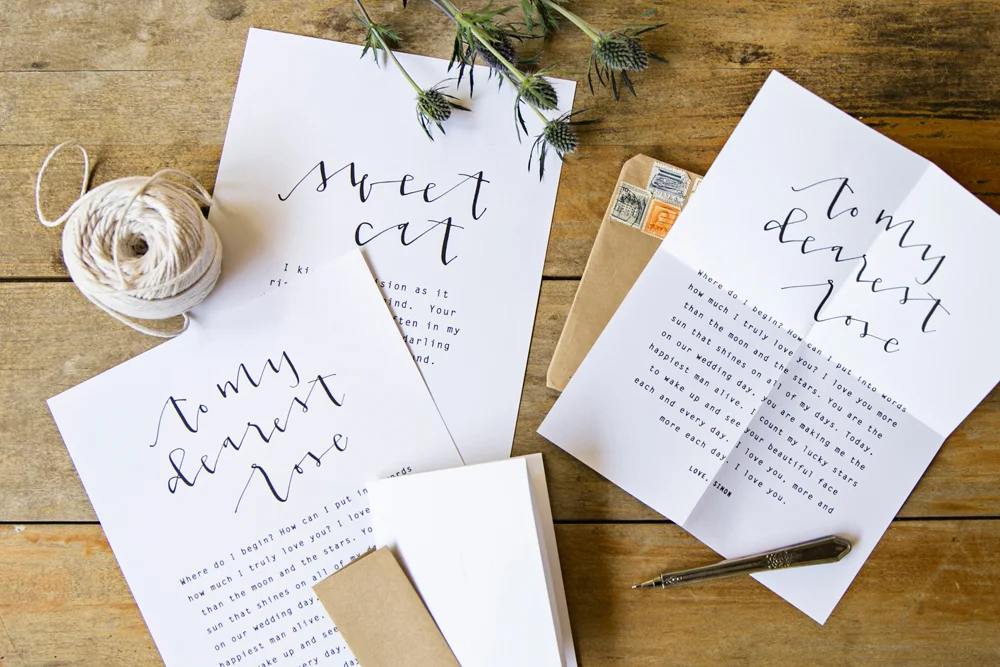 sweet
cat
I
sion as it
ind. Your
ten in my
arling
nd.
to my
dearest
rose
Where do I begin? How can I put into words
how much I truly love you? I love you more
than the moon and the stars. You are the
sun that shines on all of my days. Today.
on our wedding day, you are making me the
happiest man alive. I count my lucky stars
to wake up and see your beautiful face
each and every day. I love you, more and
more each day. I love you.
LOVE, SIMON
to my
dearest
rose
words
Where do I begin? How can I put in
how much I truly love you? I love
than the moon and the stars. Yo
sun that shines on all of my
on our wedding day,
happiest man alive.
wake up and see
every day.